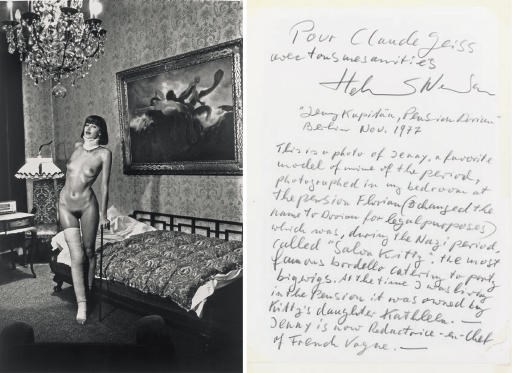 Pour Claude Geiss
avec toutes mes amitiés
Helmut Newton
"Jenny Kapitän, Pension Dorian"
Berlin Nov. 1977
This is a photo of Jenny, a favorite
model of mine of the period,
photographed in my bedroom at
the pension Florian (I changed the
name to Dorian for legal purposes)
which was, during the Nazi period,
called "Salon Kitty". the most
famous bordello catering to party
bigwigs. At the time I was living
in the Pension it was owned by
Kitty's daughter Kathleen. —
Jenny is now Redactrice-en-Chef
of French Vogue. —